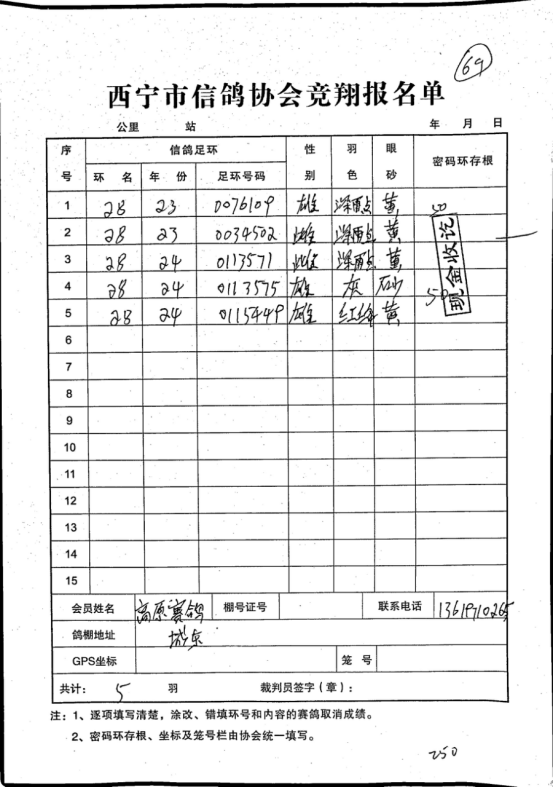 69
西宁市信鸽协会竞翔报名单
公里 站 年 月 日
序号 信鸽足环 性别 羽色 眼砂 密码环存根
环名 年份 足环号码
1 28 23 0076109 雄 深雨点 黄 50
2 28 23 0034502 雌 深雨点 黄
3 28 24 0113571 雌 深雨点 黄
4 28 24 0113575 雄 灰 砂 50
5 28 24 0115449 雄 红绛 黄
现金收讫
6
7
8
9
10
11
12
13
14
15
会员姓名 高原赛鸽 棚号证号 联系电话
鸽棚地址 城东
GPS坐标 笼号
共计： 5 羽 裁判员签字（章）：
注：1、逐项填写清楚，涂改、错填环号和内容的赛鸽取消成绩。
2、密码环存根、坐标及笼号栏由协会统一填写。
250